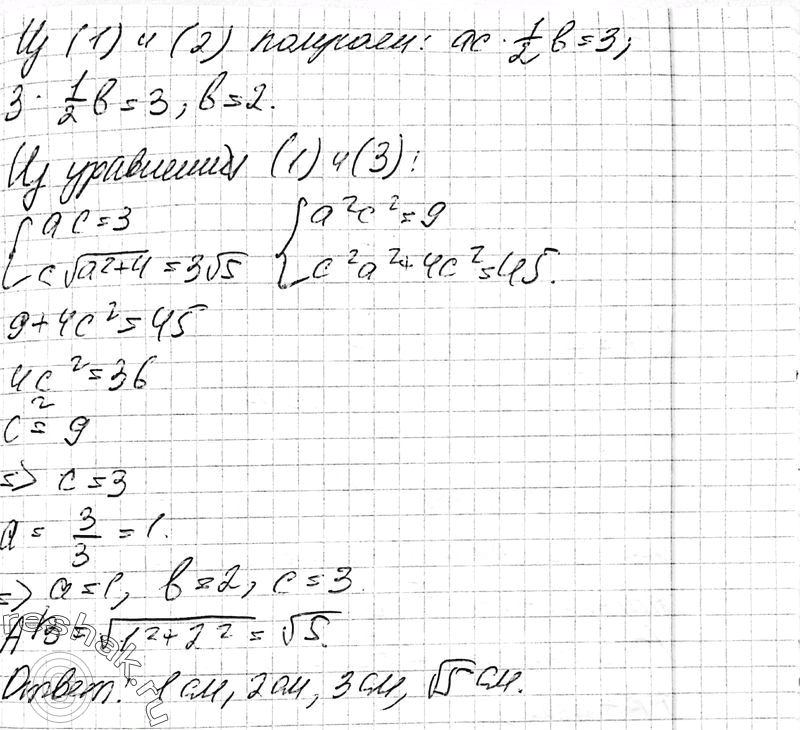 Из (1) и (2) получаем: ac · 1/2 b = 3;
3 · 1/2 b = 3, b = 2.
Из уравнений (1) и (3):
{ ac = 3 { a²c² = 9
{ c√(a²+4) = 3√5 { c²a² + 4c² = 45.
9 + 4c² = 45
4c² = 36
c² = 9
=> c = 3
a = 3/3 = 1.
=> a = 1, b = 2, c = 3.
AB = √(1² + 2²) = √5.
Ответ: 1 см, 2 см, 3 см, √5 см.
reshak.ru